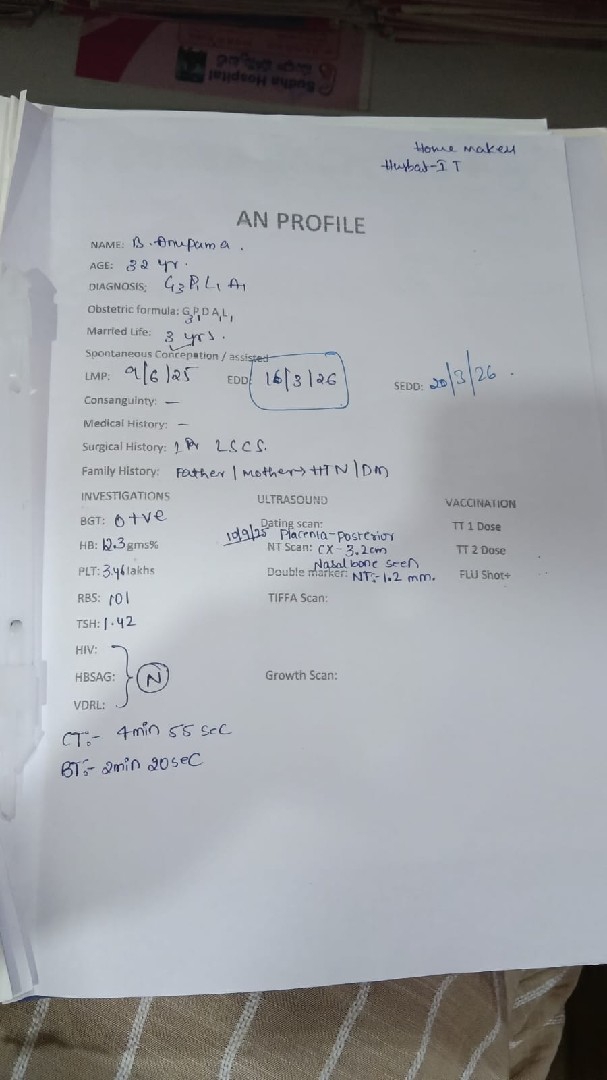 Sudha Hospital
Home maker
Husbad-IT
AN PROFILE
NAME: B. Anupama.
AGE: 32 yr.
DIAGNOSIS: G3 P1 L1 A1
Obstetric formula: G3P1D A1L1
Married Life: 3 yrs.
Spontaneous Concepation / assisted
LMP: 9/6/25 EDD: 16/3/26 SEDD: 20/3/26.
Consanguinty: —
Medical History: —
Surgical History: LSCS.
Family History: Father / Mother → HTN / DM
INVESTIGATIONS ULTRASOUND VACCINATION
BGT: O+ve Dating scan: TT 1 Dose
10/9/25 Placenta-Posterior
HB: 12.3 gms% NT Scan: CX - 3.2cm TT 2 Dose
Nasal bone seen
PLT: 3.46 lakhs Double marker: NT:- 1.2 mm. FLU Shot+
RBS: 101 TIFFA Scan:
TSH: 1.42
HIV:
HBSAG: N Growth Scan:
VDRL:
CT:- 4min 55 sec
BT:- 2min 20sec